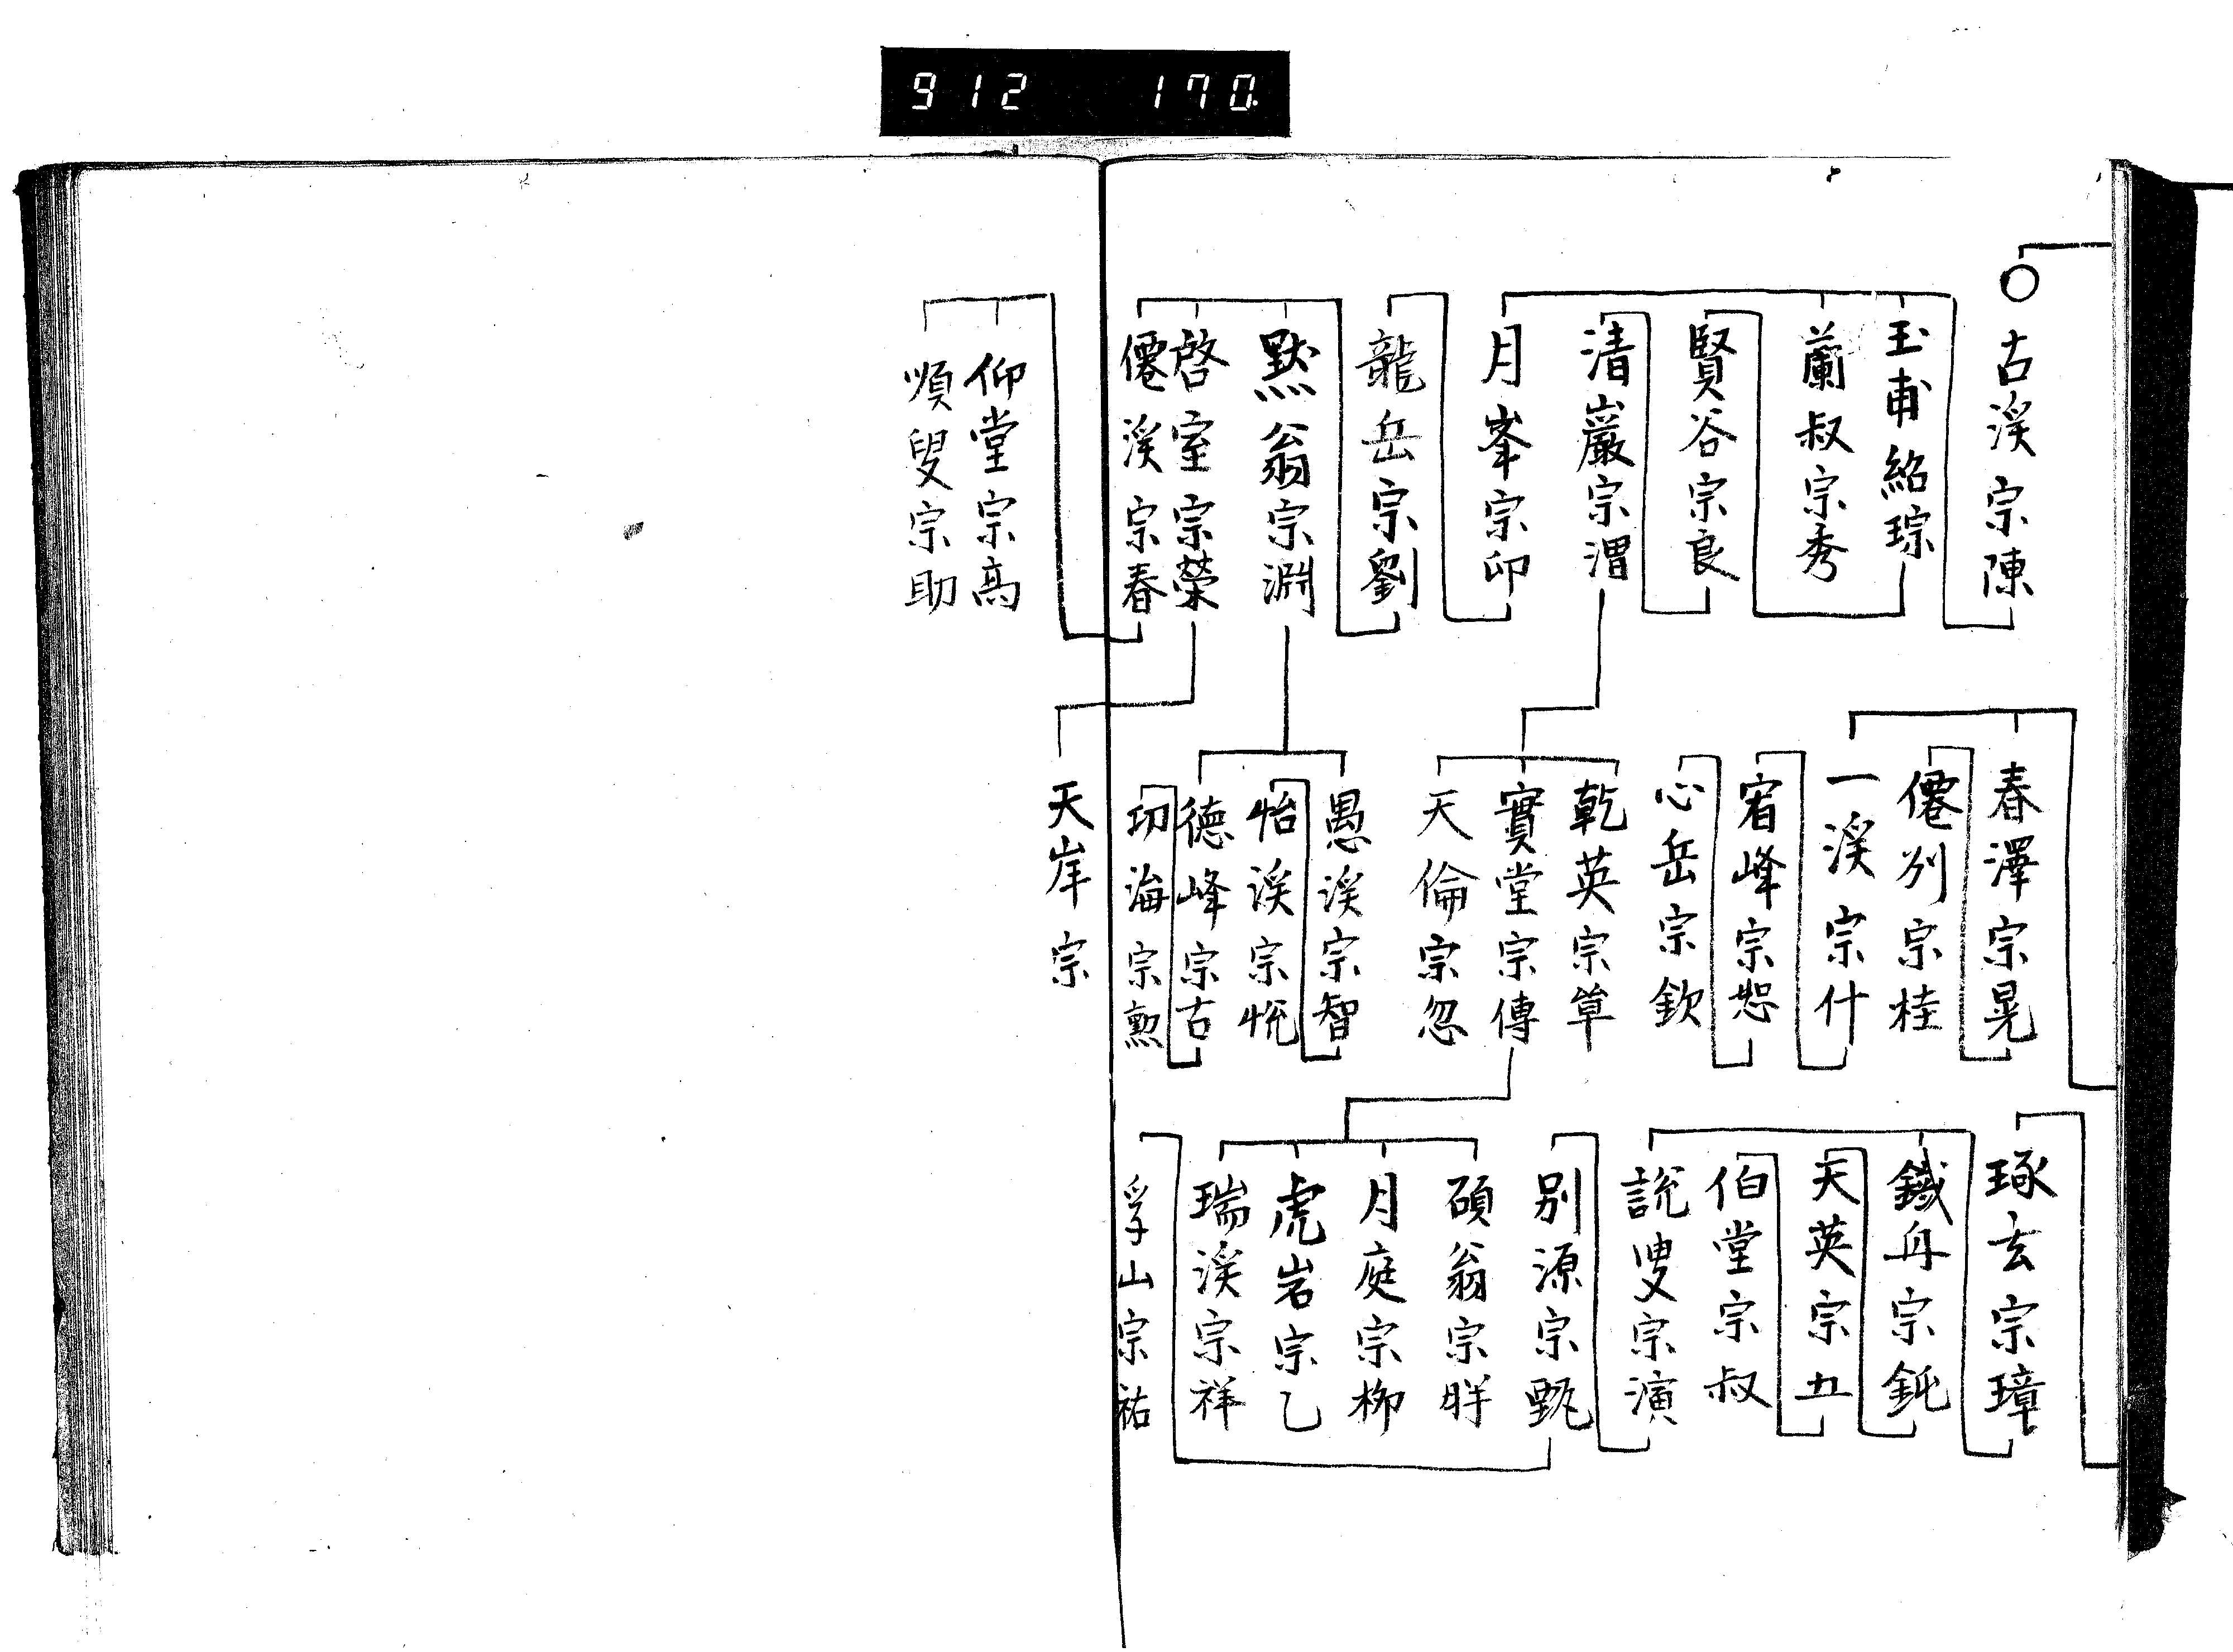 912 170
古渓宗陳
玉甫紹琮
蘭叔宗秀
賢谷宗良
清巖宗渭
月峯宗印
龍岳宗劉
黙翁宗淵
啓室宗榮
僊渓宗春
仰堂宗高
順叟宗助
春澤宗晃
僊列宗桂
一渓宗什
宥峰宗恕
心岳宗欽
乾英宗単
實堂宗傳
天倫宗忽
愚渓宗智
怡渓宗悦
徳峰宗古
功海宗勲
天岸宗
琢玄宗璋
鐵舟宗鈍
天英宗五
伯堂宗叔
説叟宗演
別源宗甄
碩翁宗胖
月庭宗柳
虎岩宗乙
瑞渓宗祥
孚山宗祐